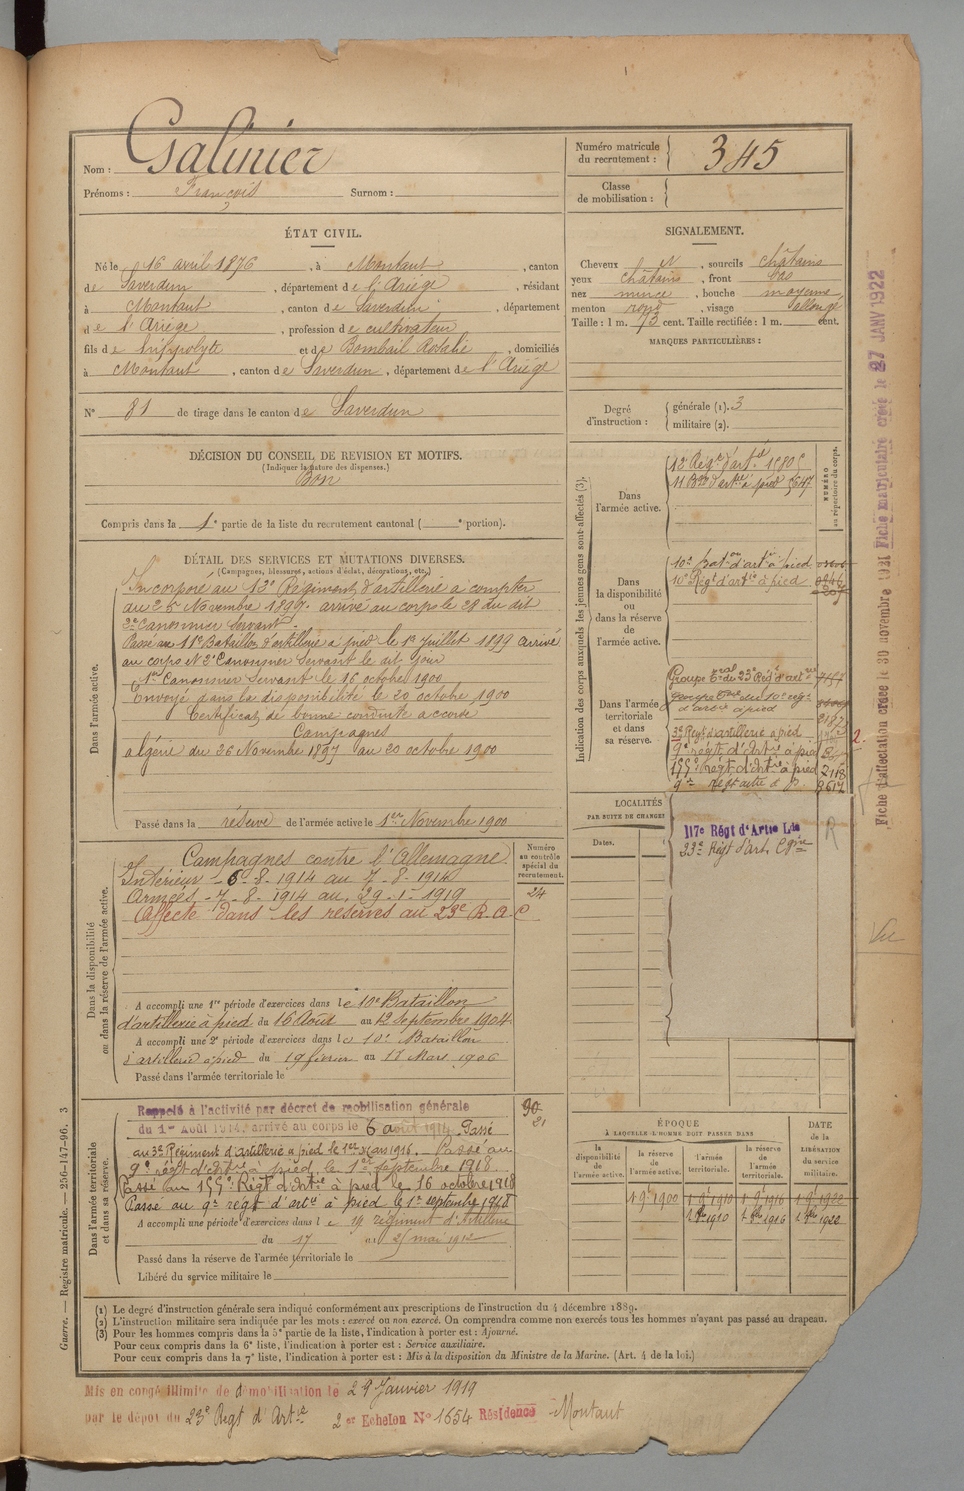 Nom : Galinier
Prénoms : François Surnom :
Numéro matricule du recrutement : 345
Classe de mobilisation :
ÉTAT CIVIL.
Né le 16 avril 1876, à Montaut, canton
de Saverdun, département de l'Ariège, résidant
à Montaut, canton de Saverdun, département
de l'Ariège, profession de cultivateur
fils de hippolyte et de Bombail Rosalie, domiciliés
à Montaut, canton de Saverdun, département de l'Ariège
N° 81 de tirage dans le canton de Saverdun
SIGNALEMENT.
Cheveux N, sourcils châtains
yeux châtains, front bas
nez mince, bouche moyenne
menton rond, visage allongé
Taille : 1 m. 73 cent. Taille rectifiée : 1 m. cent.
MARQUES PARTICULIÈRES :
Degré d'instruction : générale (1). 3
militaire (2).
DÉCISION DU CONSEIL DE REVISION ET MOTIFS.
(Indiquer la nature des dispenses.)
Bon
Compris dans la 1e partie de la liste du recrutement cantonal ( e portion).
DÉTAIL DES SERVICES ET MUTATIONS DIVERSES.
(Campagnes, blessures, actions d'éclat, décorations, etc.)
Dans l'armée active.
Incorporé au 13e Régiment d'artillerie à compter
au 25 Novembre 1897. arrivé au corps le 28 du dit
2e Canonnier servant.
Passé au 11e Bataillon d'artillerie à pied le 1er Juillet 1899 arrivé
au corps et 2e Canonnier Servant le dit jour
1er Canonnier Servant le 16 octobre 1900
Envoyé dans la disponibilité le 20 octobre 1900
Certificat de bonne conduite accordé
Campagnes
algérie du 26 Novembre 1897 au 20 octobre 1900
Passé dans la réserve de l'armée active le 1er Novembre 1900
Dans la disponibilité ou dans la réserve de l'armée active.
Campagnes contre l'Allemagne.
Intérieur - 6-8-1914 au 7-8-1914
Armées - 7-8-1914 au 29-1-1919
Affecté dans les réserves au 23e R.A.C
Numéro au contrôle spécial du recrutement.
24
A accompli une 1re période d'exercices dans le 10e Bataillon
d'artillerie à pied du 16 Août au 12 Septembre 1904
A accompli une 2e période d'exercices dans le 10e Bataillon
d'artillerie à pied du 19 février au 17 Mars 1906
Passé dans l'armée territoriale le
Dans l'armée territoriale et dans sa réserve.
Rappelé à l'activité par décret de mobilisation générale
du 1er Août 1914, arrivé au corps le 6 août 1914. Passé
au 3e Régiment d'artillerie à pied le 1er Mars 1916. Passé au
9e régt d'artrie à pied le 1er Septembre 1918
Passé au 155e Régt d'Artie à pied le 16 octobre 1918
Passé au 9e régt d'artie à pied le 1er septembre 1918
A accompli une période d'exercices dans le régiment d'Artillerie
du 17 au 25 mai 1912
Passé dans la réserve de l'armée territoriale le
Libéré du service militaire le
90
21
Indication des corps auxquels les jeunes gens sont affectés (3).
NUMÉRO au répertoire du corps.
Dans l'armée active.
11 Bon d'artie à pied 5647
Dans la disponibilité ou dans la réserve de l'armée active.
10e bataon d'artie à pied
10e Régt d'artie à pied
Dans l'armée territoriale et dans sa réserve.
Groupe Tral du 23e Régt d'artie
d'artie à pied
3e Régt d'artillerie à pied
9e régt d'Artie à pied
155e Régt d'Artie à pied 2118
117e Régt d'Artie Lde
LOCALITÉS
PAR SUITE DE CHANGE
Dates.
ÉPOQUE À LAQUELLE L'HOMME DOIT PASSER DANS
la disponibilité de l'armée active.
la réserve de l'armée active.
l'armée territoriale.
la réserve de l'armée territoriale.
DATE de la LIBÉRATION du service militaire.
1 9e 1900 1 9e 1910 1 9e 1916 1 9e 1922
1 8bre 1910 1 8bre 1916 1 8bre 1922
Fiche d'affectation créée le 30 novembre 1921 Fiche matriculaire créée le 27 JANV 1922
Vu
R
2.
Guerre. — Registre matricule. — 256-147-96. 3
(1) Le degré d'instruction générale sera indiqué conformément aux prescriptions de l'instruction du 4 décembre 1889.
(2) L'instruction militaire sera indiquée par les mots : exercé ou non exercé. On comprendra comme non exercés tous les hommes n'ayant pas passé au drapeau.
(3) Pour les hommes compris dans la 5e partie de la liste, l'indication à porter est : Ajourné.
Pour ceux compris dans la 6e liste, l'indication à porter est : Service auxiliaire.
Pour ceux compris dans la 7e liste, l'indication à porter est : Mis à la disposition du Ministre de la Marine. (Art. 4 de la loi.)
Mis en congé illimité de démobilisation le 29 Janvier 1919
par le dépôt du 23e Régt d'Artie 2er Echelon N° 1654 Résidence Montaut